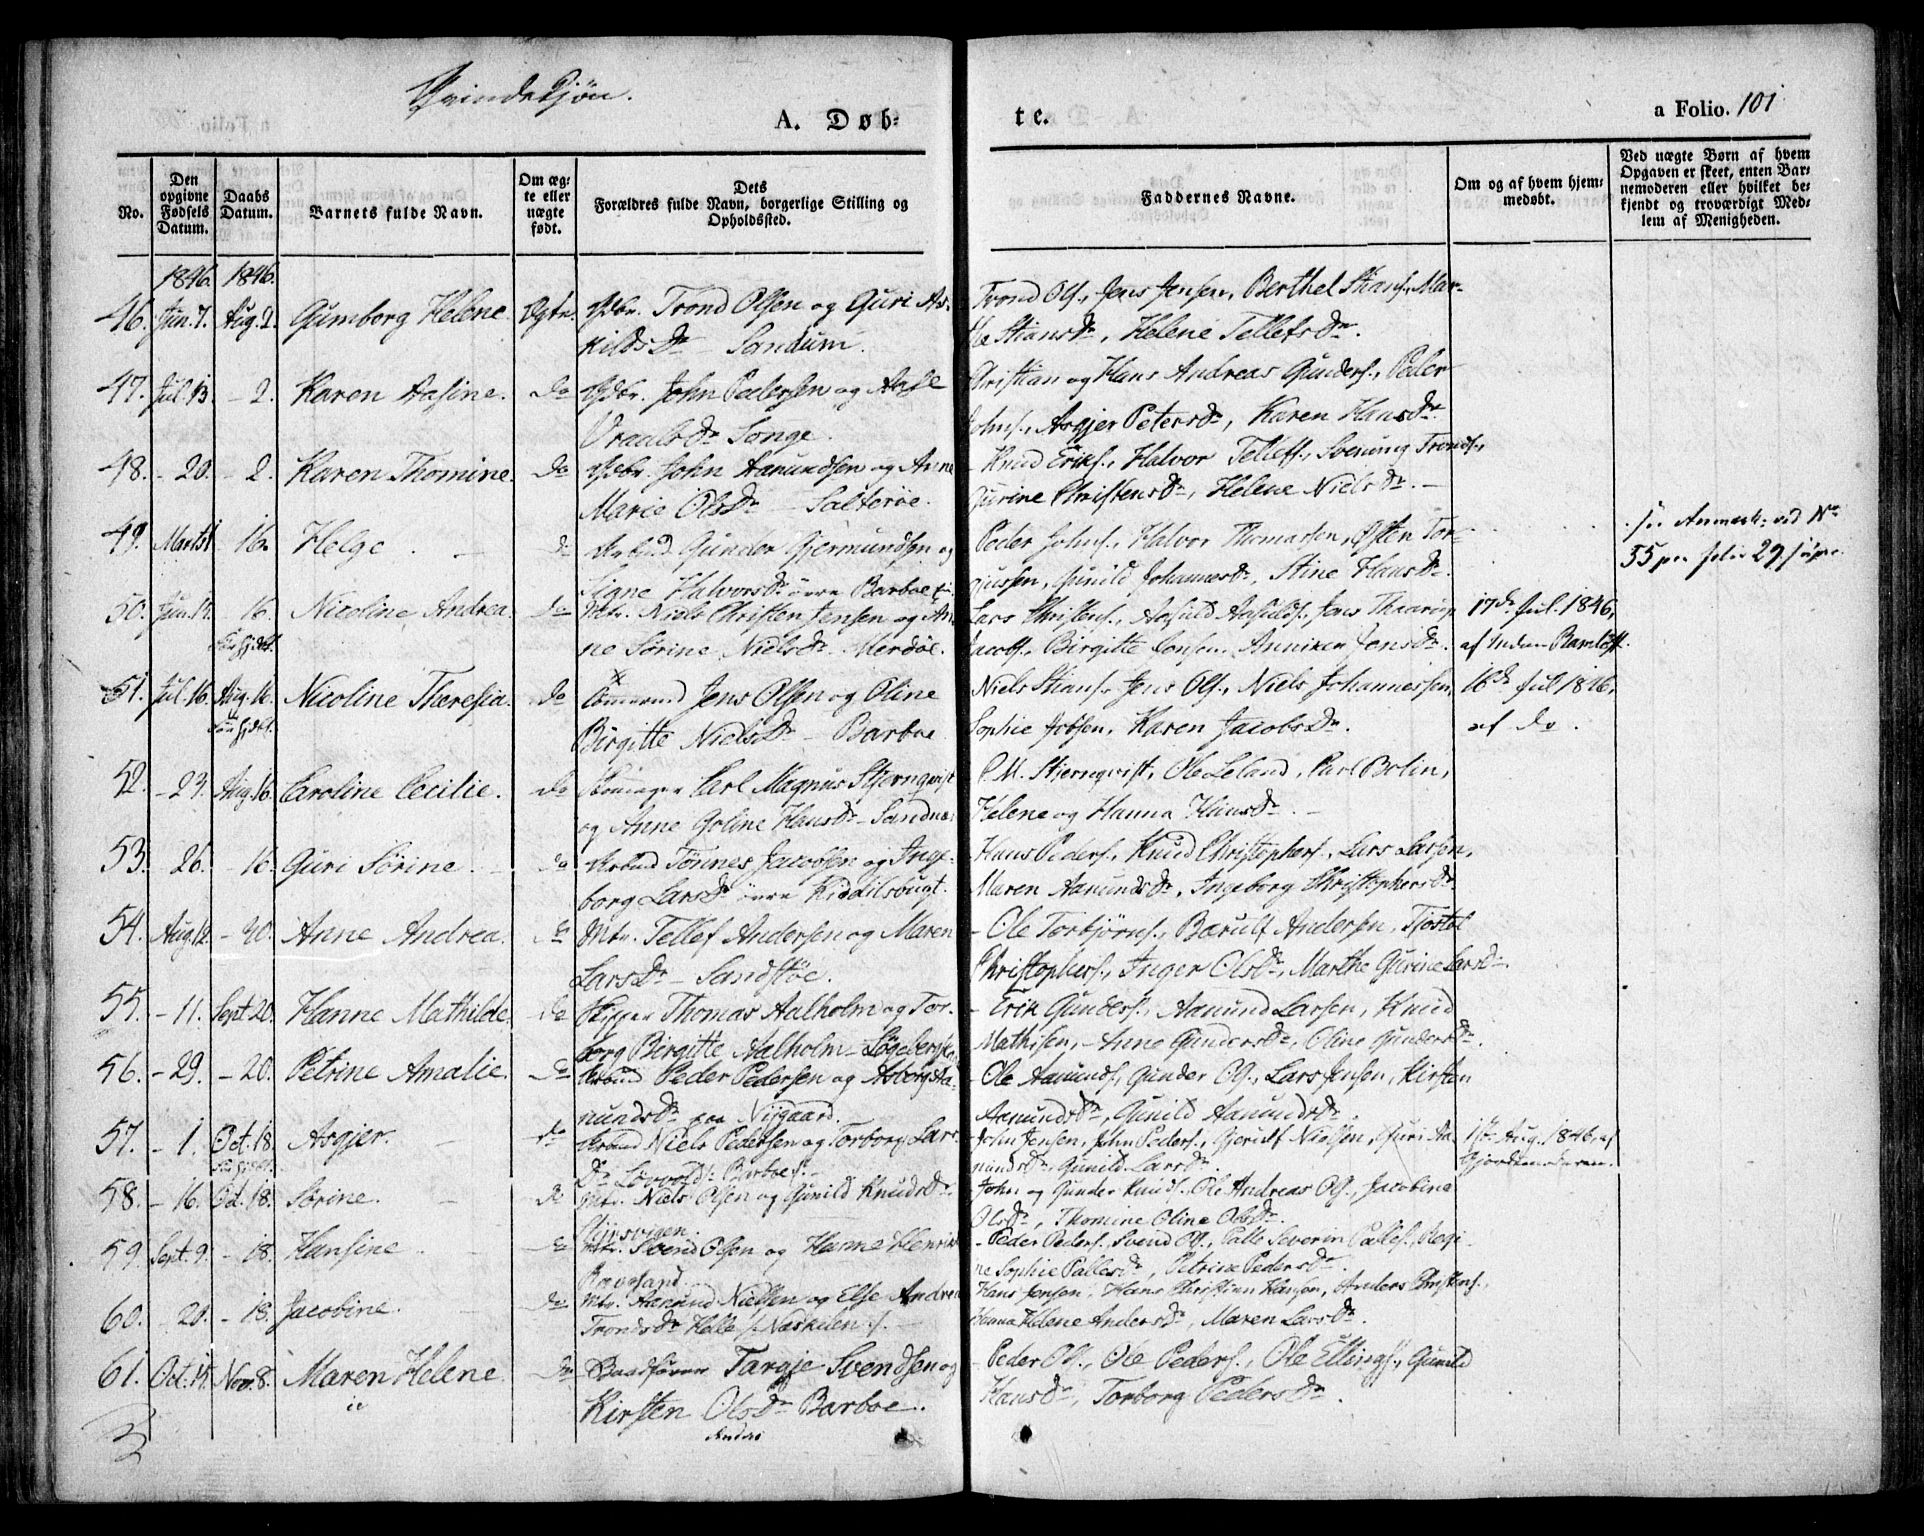 Qvindekjön.
A. Døb-
te.
a Folio. 101
No.
Den opgivne Fødsels Datum.
Daabs Datum.
Barnets fulde Navn.
Om ægte eller uægte født.
Dets Forældres fulde Navn, borgerlige Stilling og Opholdssted.
Faddernes Navne.
Om og af hvem hjemmedøbt.
Ved uægte Børn af hvem Opgaven er skeet, enten Barnemoderen eller hvilket bekjendt og troværdigt Medlem af Menigheden.
1846. 1846.
46. Jun. 7. Aug. 2. Gumborg Helene. Ægte. Gbr. Trond Olsen og Guri As- Trond Ols., Jens Jensen, Berthel Stians., Mar-
kildsDr - Sandum. the StiansDr, Helene TellefsDr.
47. Jul. 13. - 2. Karen Aasine. Do Gbr. John Pedersen og Aase Christian og Hans Andreas Gunders., Peder
Dr Songe. Johns., Asgjer PetersDr, Karen HansDr.
48. - 20. - 2. Karen Thomine. Do Gbr. John Aanundsen og Anne - Knud Eriks., Halvor Tellefs., Sveinung Tronds.,
Marie OlsDr - Salterøe. Gurine ChristensDr, Helene NielsDr. -
49. Marts 1 16. Helge. - Do Arbmd Gunder Gjermundsen og Peder Johns., Halvor Thomassen, Østen Tor- Anmærk. ved No
Signe HalvorsDr Barboe gjussen, Gunild JohannesDr, Stine HansDr. 55 folio 29
50. Jun. 13. 16. Nicoline Andrea. Do Mtr. Niels Christen Jensen og An- Lars Christens., Jens Thaarup 17de Jul. 1846,
ne Sørine NielsDr Merdøe. Jacobs., Birgitte Jonsen, Anniken JensDr. af
51. Jul. 16. Aug. 16. Nicoline Theresia. Do Jens Olsen og Oline Niels Stians., Jens Ols., Niels Johannessen, 16de Jul 1846,
Birgitte NielsDr - Barboe Sophie Jobsen, Karen JacobsDr. af Do.
52. - 23. Aug. 16. Caroline Cecilie. Do Carl Magnus Stjernqvist C. M. Stjernqvist, Ole Leland, Carl Bolin,
og Anne Goline HansDr - Sandnæs Helene og Hanna HansDr. -
53. - 26. - 16. Guri Sørine. - Do Arbmd Tønnes Jacobsen og Inge- Hans Peders., Knud Christophers., Lars Larsen,
borg LarsDr Kiddilsbugt. Maren AanundsDr, Ingeborg ChristophersDr.
54. Aug. 12. - 30. Anne Andrea. Do Mtr. Tellef Andersen og Maren - Ole Torbjörns., Bærulf Andersen, Tjostol
LarsDr - Sandstøe. Christophers., Inger OlsDr, Marthe Gurine LarsDr.
55. - 11. Sept. 20. Hanne Mathilde. Do Skipper Thomas Aalholm og Tor- - Erik Gunders., Aanund Larsen, Knud
borg Birgitte Aalholm - Mathisen, Anne GundersDr, Oline GundersDr.
56. - 29. - 20. Petrine Amalie. Do Arbmd Peder Pedersen og Asberg Aa- - Ole Aanunds., Gunder Ols., Lars Jensen, Kirsten
nundsDr paa Nijgaard. AanundsDr, Gunild AanundsDr.
57. - 1. Oct. 18. Asgjer. - Do Arbmd Niels Pedersen og Torborg Lars- John Jensen, John Peders., Gjerulf Nielsen, Guri Aa- Aug. 1846, af
Dr Barboe. nundsDr, Gunild LarsDr. Gjordemoderen.
58. - 16. Oct. 18. Sørine. - Do Mtr. Niels Olsen og Gunild KnudsDr. John og Gunder Knuds., Ole Andreas Ols., Jacobine
OlsDr, Thomine Oline OlsDr.
59. Sept. 9. - 18. Hansine - Do Mtr. Svend Olsen og Hanne - Peder Peders., Svend Ols., Palle Severin Palles., Regi-
Revesand. ne Sophie PallesDr, Petrine PedersDr.
60. - 20. - 18. Jacobine. - Do Mtr. Aanund Nielsen og Else Andrea Hans Jensen, Hans Christian Hansen, Anders Christens.,
TrondsDr Helle /: Næskilen :/. - Hanna Helene AndersDr, Maren LarsDr.
61. Oct. 15. Nov. 8. Maren Helene Do Baadfører Targje Svendsen og - Peder Ols., Ole Peders., Ole Ellings., Gunild
Kirsten OlsDr Barboe. HansDr, Torborg PedersDr.